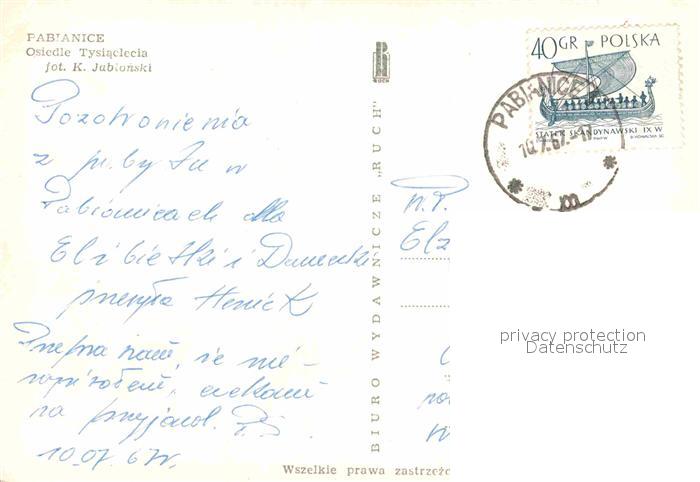 PABIANICE
Osiedle Tysiąclecia
fot. K. Jabłoński
RUCH
40GR POLSKA
STATEK SKANDYNAWSKI IX W
PABIANICE
10.7.67.-11
m
Pozdrowienia
z pobytu w
Pabianicach dla
Elżbietki i Danuski
przesyła Heniek
Przepraszam, że nie
napisałem, czekam
na przyjazd.
10.07.67r.
BIURO WYDAWNICZE „RUCH"
W.P.
Elż
Wszelkie prawa zastrzeżo
privacy protection
Datenschutz